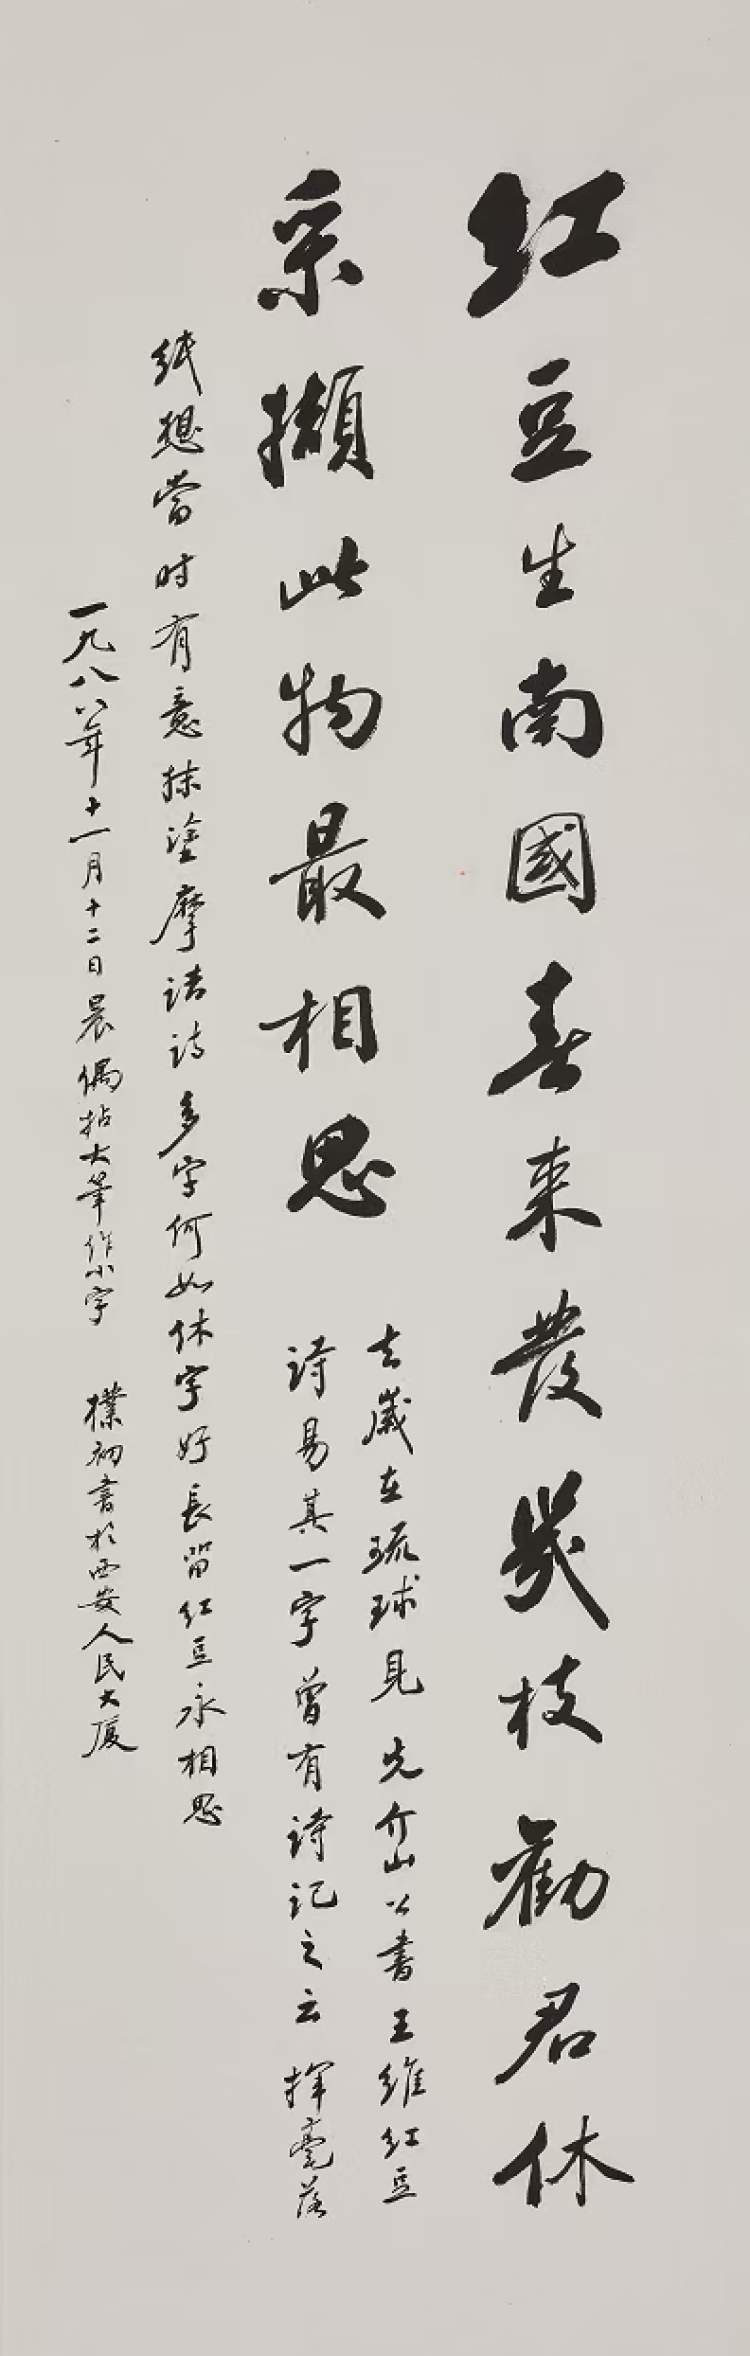 紅豆生南國春来發幾枝勸君休
采擷此物最相思
去歲在琉球見先介山公書王維紅豆
詩易其一字曾有詩記之云揮毫落
紙想當时有意抹塗摩诘诗多字何如休字好長留红豆永相思
一九八八年十一月十二日晨偶拈大筆作小字 樸初書於西安人民大厦